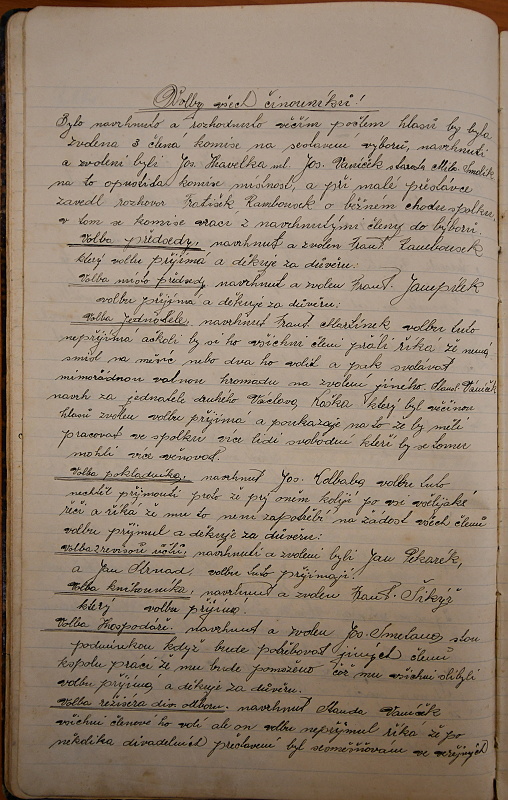 Volby všech činovníků!
Bylo navrhnuto a rozhodnuto věčím počtem hlasů by byla
zvolena 3 člena komise na sestavení výborů, navrhnuti
a zvoleni byli Jos. Havelka ml. Jos. Vaníček Milo. Smolík
na to opustila komise místnost, a při malé přestávce
zavedl rozhovor Fratišek Rambousek o běžném chodu spolku,
v tom se komise vrací z navrhnutými členy do výborů.
Volba předsedy, navrhnut a zvolen Frant. Rambousek
který volbu přijímá a děkuje za důvěru:
Volba místo předsedy navrhnut a zvolen Frant.
volbu přijímá a děkuje za důvěru:
Volba jednatele, navrhnut Frant. Martínek volbu tuto
nepřijímá ačkoli by si ho všichni členi práli říká že nemá
smisl na měsíc nebo dva ho volit a pak svolávat
mimořádnou valnou hromadu na zvolení jiného. Stand. Vaníček
navrh za jednatele druheho Václava Kaška který byl věčinou
hlasů zvolen volbu přijímá a poukazuje na to že by měli
pracovat ve spolku více lidi svobodní kteří by se tomu
mohli více věnovat.
Volba pokladníka, navrhnut Jos. volbu tuto
nechtěl přijmouti proto že prý oněm kolují po vsi všelijaké
řeči a říká že mu to není zapotřebí na žádost všech členů
volbu přijmul a děkuje za důvěru:
Volba revisorů účtů, navrhnuti a zvoleni byli Jan Pekárek,
a Jan Strnad, volbu tuto přijímají.
Volba knihovníka, navrhnut a zvolen Frant. Šikýř
který volbu přijímá.
Volba Hospodáře, navrhnut a zvolen Jos. Smetana stou
podmínkou když bude potřebovat jiných členů
kspolu praci že mu bude pomoženo což mu všichni slíbyli
volbu přijímá a děkuje za důvěru.
Volba režiséra div. odboru, navrhnut Standa Vaníček
všichni členové ho volí ale on volbu nepřijmul říká že po
několika divadelních představení byl sesměšňován ve veřejných